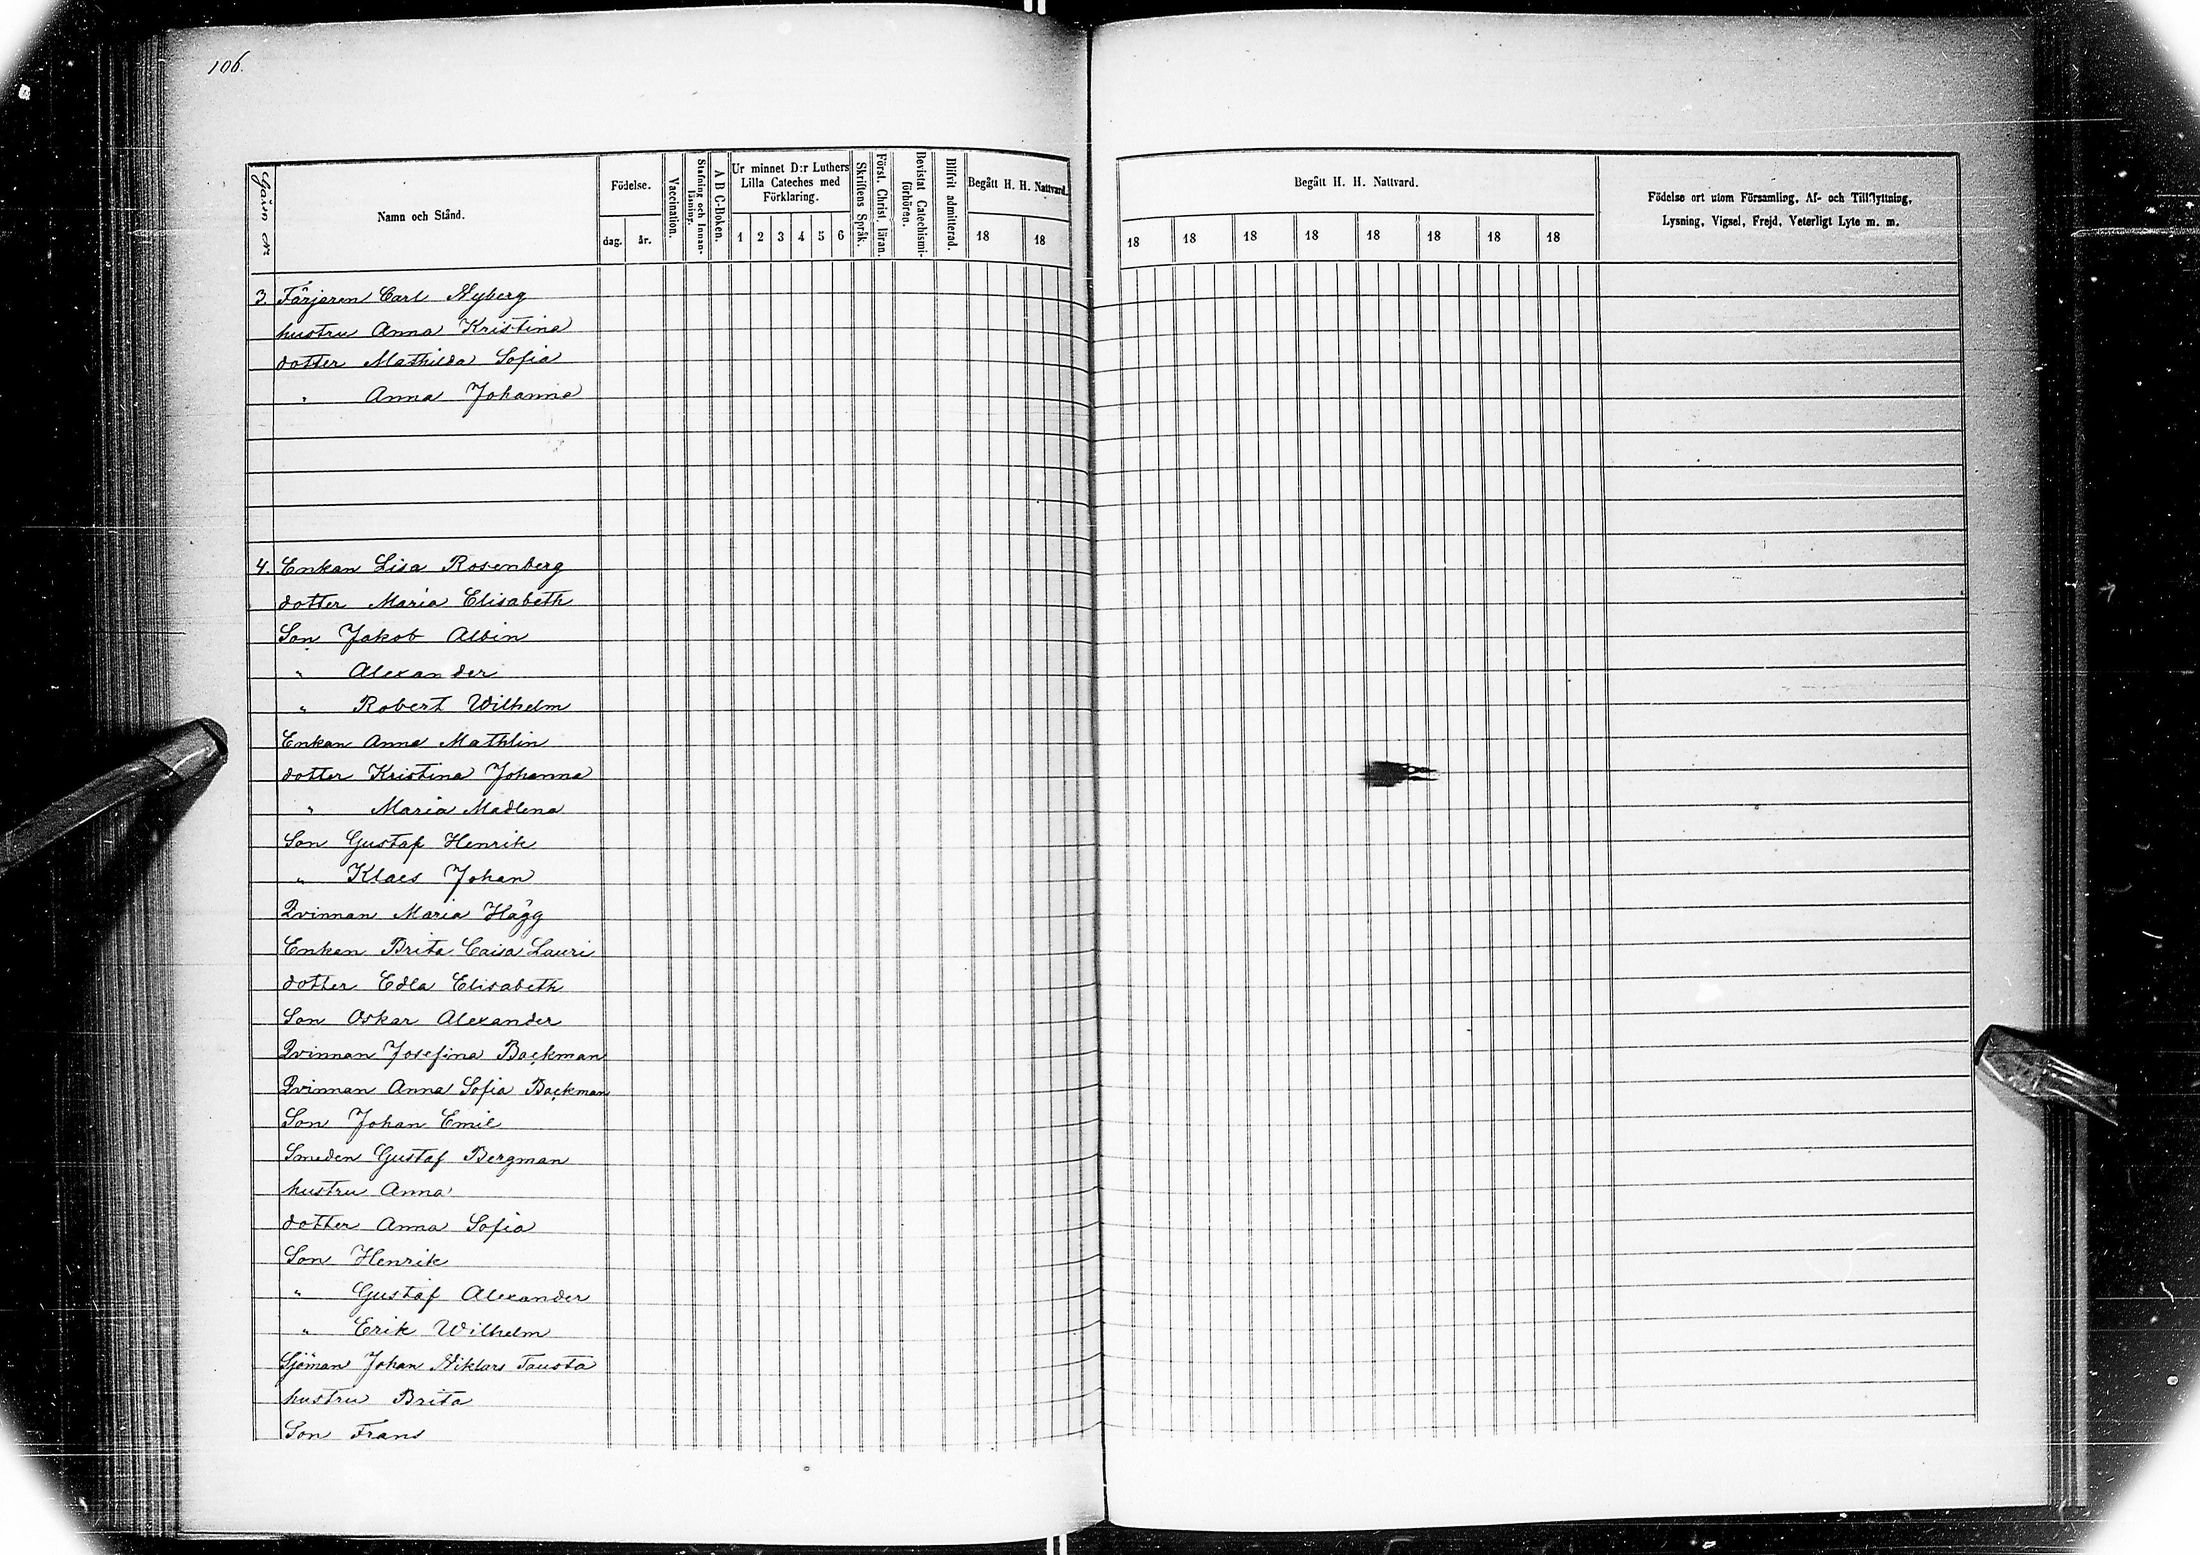 106.
Gårds No
Namn och Stånd.
Födelse.
dag.
år.
Vaccination.
Stafning och Innanläsning.
A B C-Boken.
Ur minnet D:r Luthers Lilla Cateches med Förklaring.
1 2 3 4 5 6
Skriftens Språk.
Först. Christ. läran.
Bevistat Catechismi-förhören.
Blifvit admitterad.
Begått H. H. Nattvard.
18 18
Begått H. H. Nattvard.
18 18 18 18 18 18 18 18
Födelse ort utom Församling, Af- och Tillflyttning,
Lysning, Vigsel, Frejd, Veterligt Lyte m. m.
3. Färjaren Carl Nyberg
hustru Anna Kristina
dotter Mathilda Sofia
" Anna Johanna
4. Enkan Lisa Rosenberg
dotter Maria Elisabeth
Son Jakob Albin
" Alexander
" Robert Wilhelm
Enkan Anna Mathlin
dotter Kristina Johanna
" Maria Madlena
Son Gustaf Henrik
" Klaes Johan
Qvinnan Maria Hägg
Enkan Brita Caisa Lauri
dotter Edla Elisabeth
Son Oskar Alexander
Qvinnan Josefina Backman
Qvinnan Anna Sofia Backman
Son Johan Emil
Smeden Gustaf Bergman
hustru Anna
dotter Anna Sofia
Son Henrik
" Gustaf Alexander
" Erik Wilhelm
Sjöman Johan Niklars Tausta
hustru Brita
Son Frans